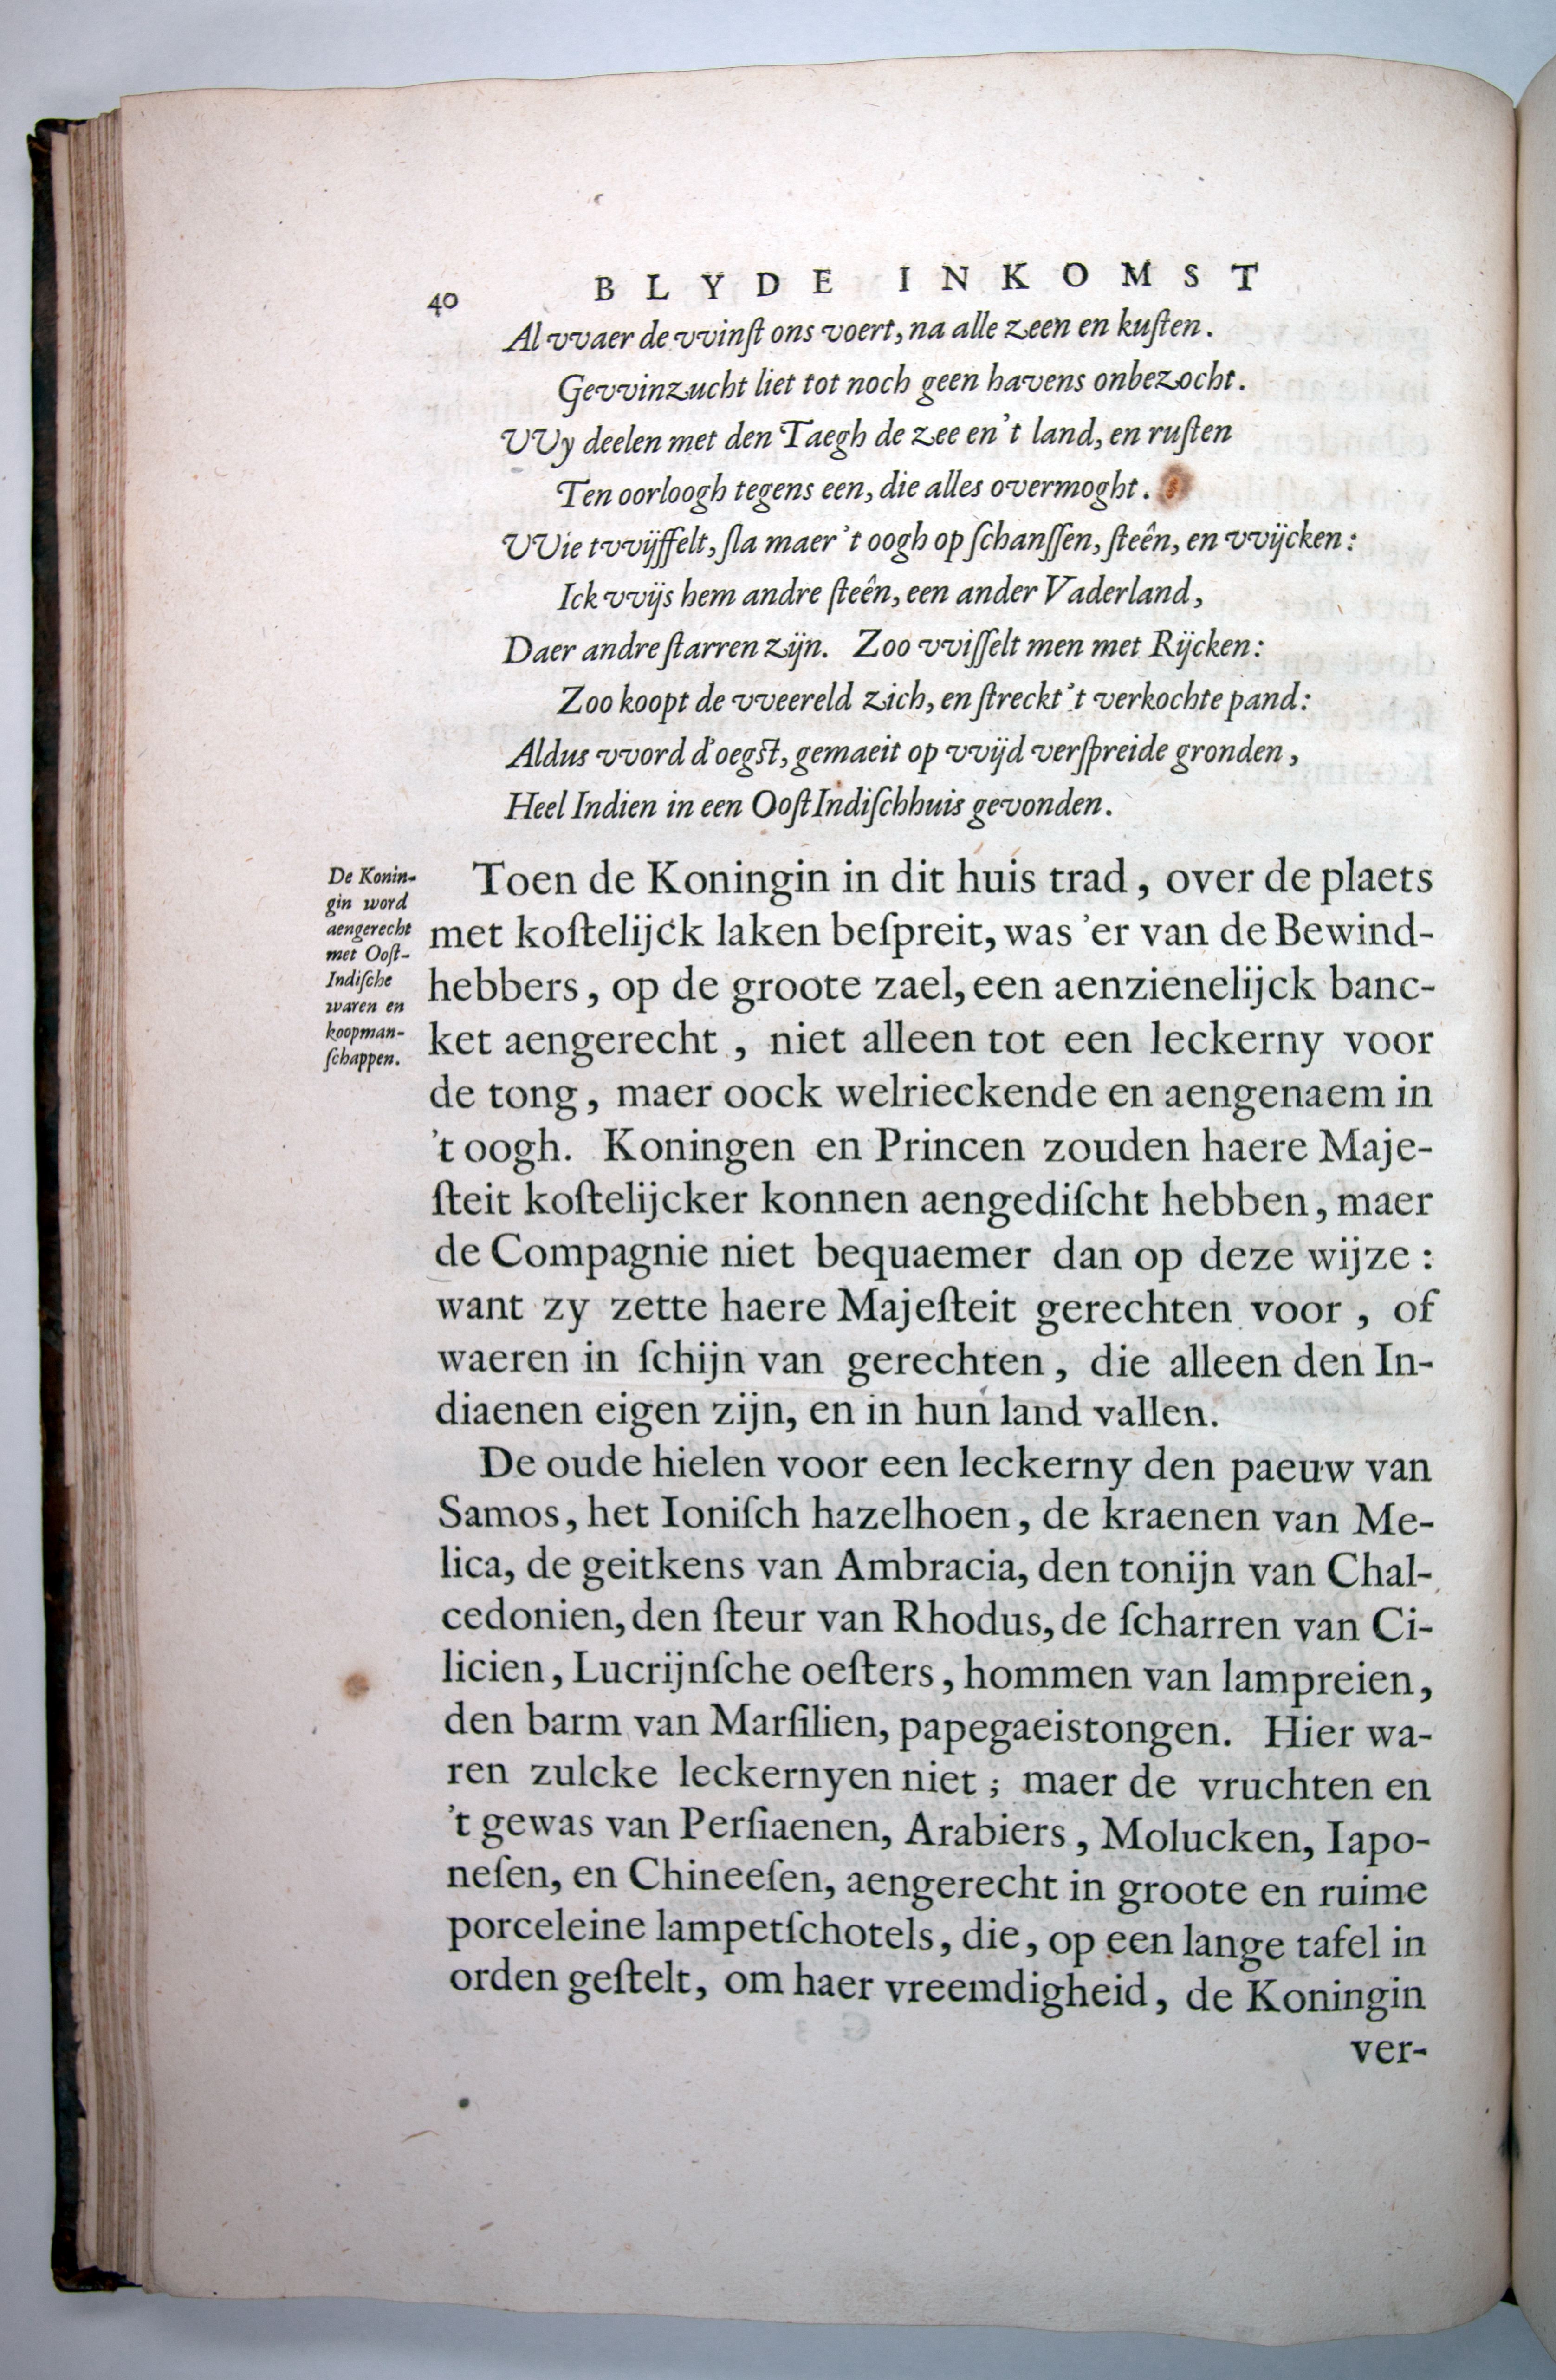 40 BLYDE INKOMST
Al vvaer de vvinſt ons voert, na alle zeen en kuſten.
Gevvinzucht liet tot noch geen havens onbezocht.
VVy deelen met den Taegh de zee en 't land, en ruſten
Ten oorloogh tegens een, die alles overmoght.
VVie tvvijffelt, ſla maer 't oogh op ſchanſſen, ſteên, en vvijcken:
Ick vvijs hem andre ſteên, een ander Vaderland,
Daer andre ſtarren zijn. Zoo vviſſelt men met Rijcken:
Zoo koopt de vveereld zich, en ſtreckt 't verkochte pand:
Aldus vvord d'oegſt, gemaeit op vvijd verſpreide gronden,
Heel Indien in een Ooſt Indiſchhuis gevonden.
De Konin-
gin word
aengerecht
met Ooſt-
Indiſche
waren en
koopman-
ſchappen.
Toen de Koningin in dit huis trad, over de plaets
met koſtelijck laken beſpreit, was 'er van de Bewind-
hebbers, op de groote zael, een aenzienelijck banc-
ket aengerecht, niet alleen tot een leckerny voor
de tong, maer oock welrieckende en aengenaem in
't oogh. Koningen en Princen zouden haere Maje-
ſteit koſtelijcker konnen aengediſcht hebben, maer
de Compagnie niet bequaemer dan op deze wijze:
want zy zette haere Majeſteit gerechten voor, of
waeren in ſchijn van gerechten, die alleen den In-
diaenen eigen zijn, en in hun land vallen.
De oude hielen voor een leckerny den paeuw van
Samos, het Ioniſch hazelhoen, de kraenen van Me-
lica, de geitkens van Ambracia, den tonijn van Chal-
cedonien, den ſteur van Rhodus, de ſcharren van Ci-
licien, Lucrijnſche oeſters, hommen van lampreien,
den barm van Marſilien, papegaeistongen. Hier wa-
ren zulcke leckernyen niet; maer de vruchten en
't gewas van Perſiaenen, Arabiers, Molucken, Iapo-
neſen, en Chineeſen, aengerecht in groote en ruime
porceleine lampetſchotels, die, op een lange tafel in
orden geſtelt, om haer vreemdigheid, de Koningin
ver-